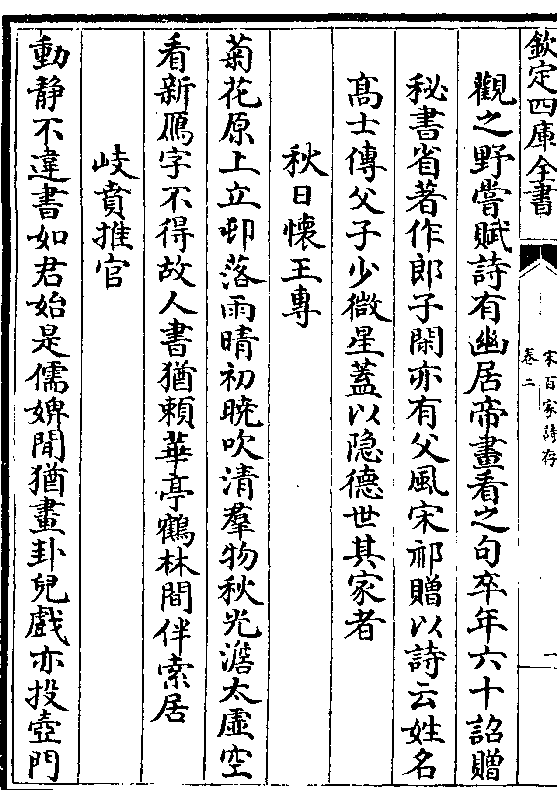 欽定四庫全書
宋百家詩存
卷二
一
觀之野嘗賦詩有幽居帝畫看之句卒年六十詔贈
秘書省著作郎子閑亦有父風宋祁贈以詩云姓名
髙士傳父子少微星蓋以隐德世其家者
秋日懷王專
菊花原上立卭落雨晴初晩吹清羣物秋光澹太虚空
看新鴈字不得故人書猶頼華亭鶴林間伴索居
岐賁推官
動静不違書如君始是儒婢閒猶畫卦兒戲亦投壺門